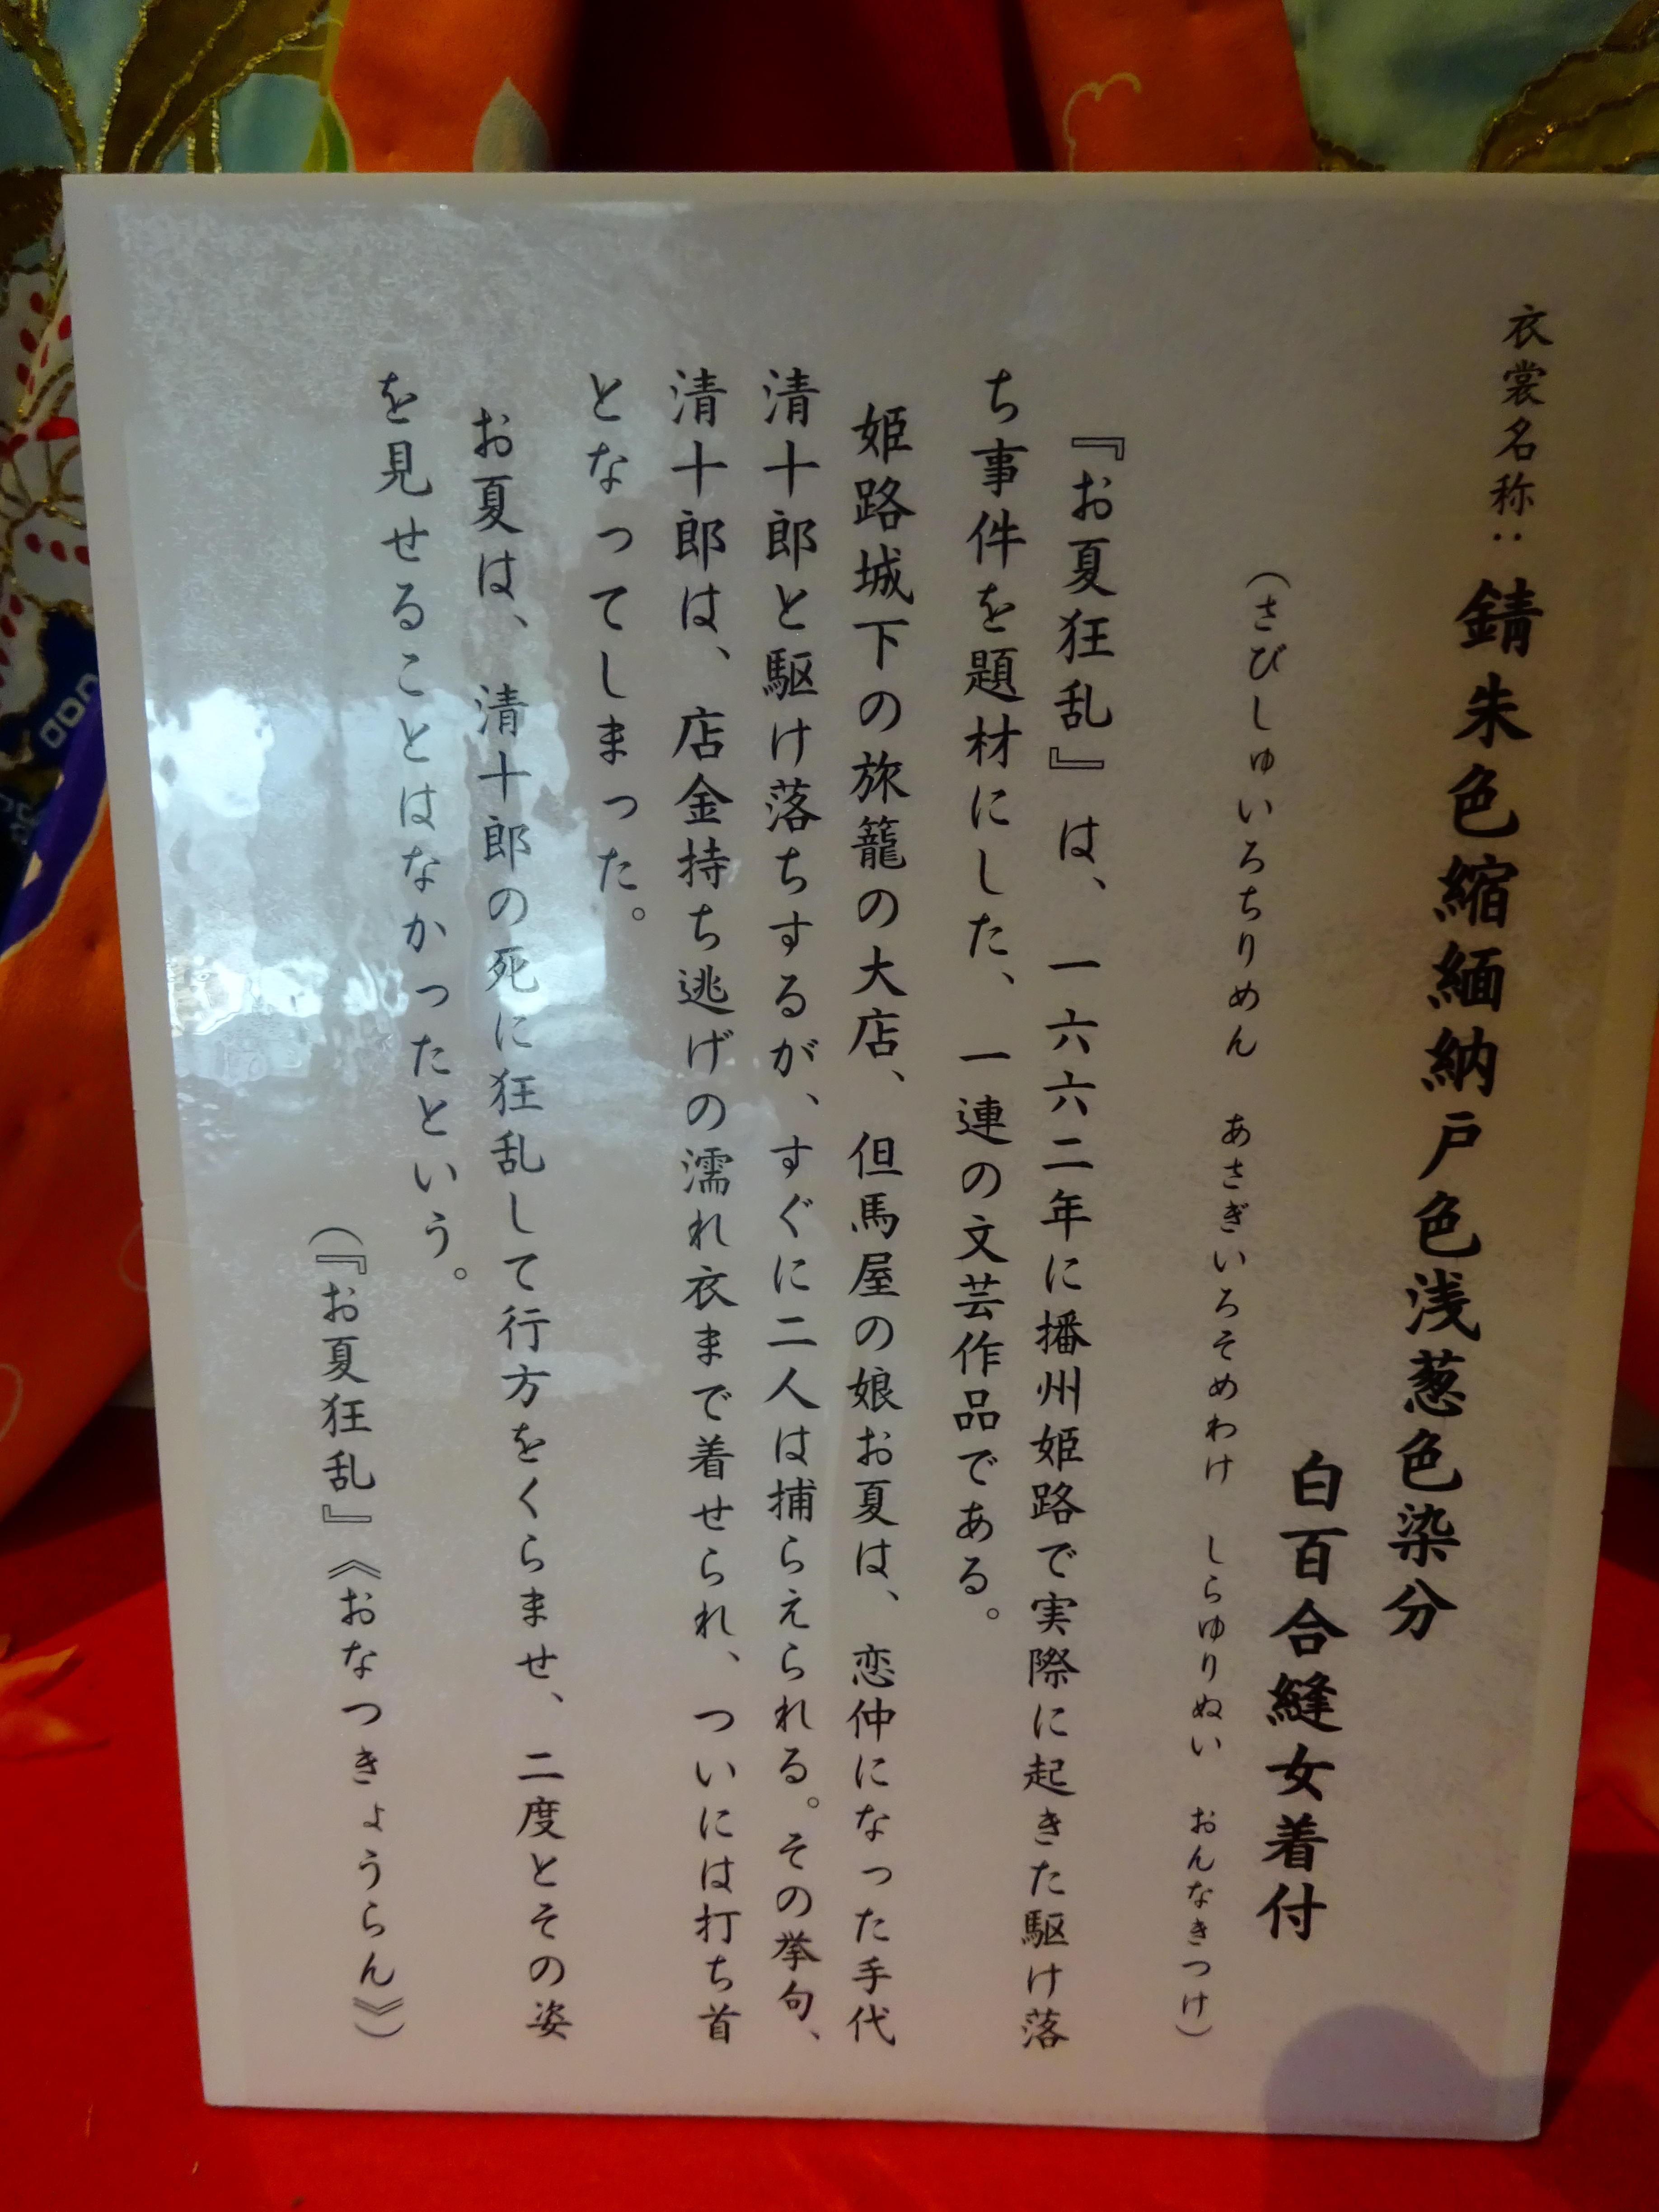 衣裳名称：錆朱色縮緬納戸色浅葱色染分
白百合縫女着付
（さびしゅいろちりめん　あさぎいろそめわけ　しらゆりぬい　おんなきつけ）
『お夏狂乱』は、一六六二年に播州姫路で実際に起きた駆け落
ち事件を題材にした、一連の文芸作品である。
姫路城下の旅籠の大店、但馬屋の娘お夏は、恋仲になった手代
清十郎と駆け落ちするが、すぐに二人は捕らえられる。その挙句、
清十郎は、店金持ち逃げの濡れ衣まで着せられ、ついには打ち首
となってしまった。
お夏は、清十郎の死に狂乱して行方をくらませ、二度とその姿
を見せることはなかったという。
（『お夏狂乱』《おなつきょうらん》）